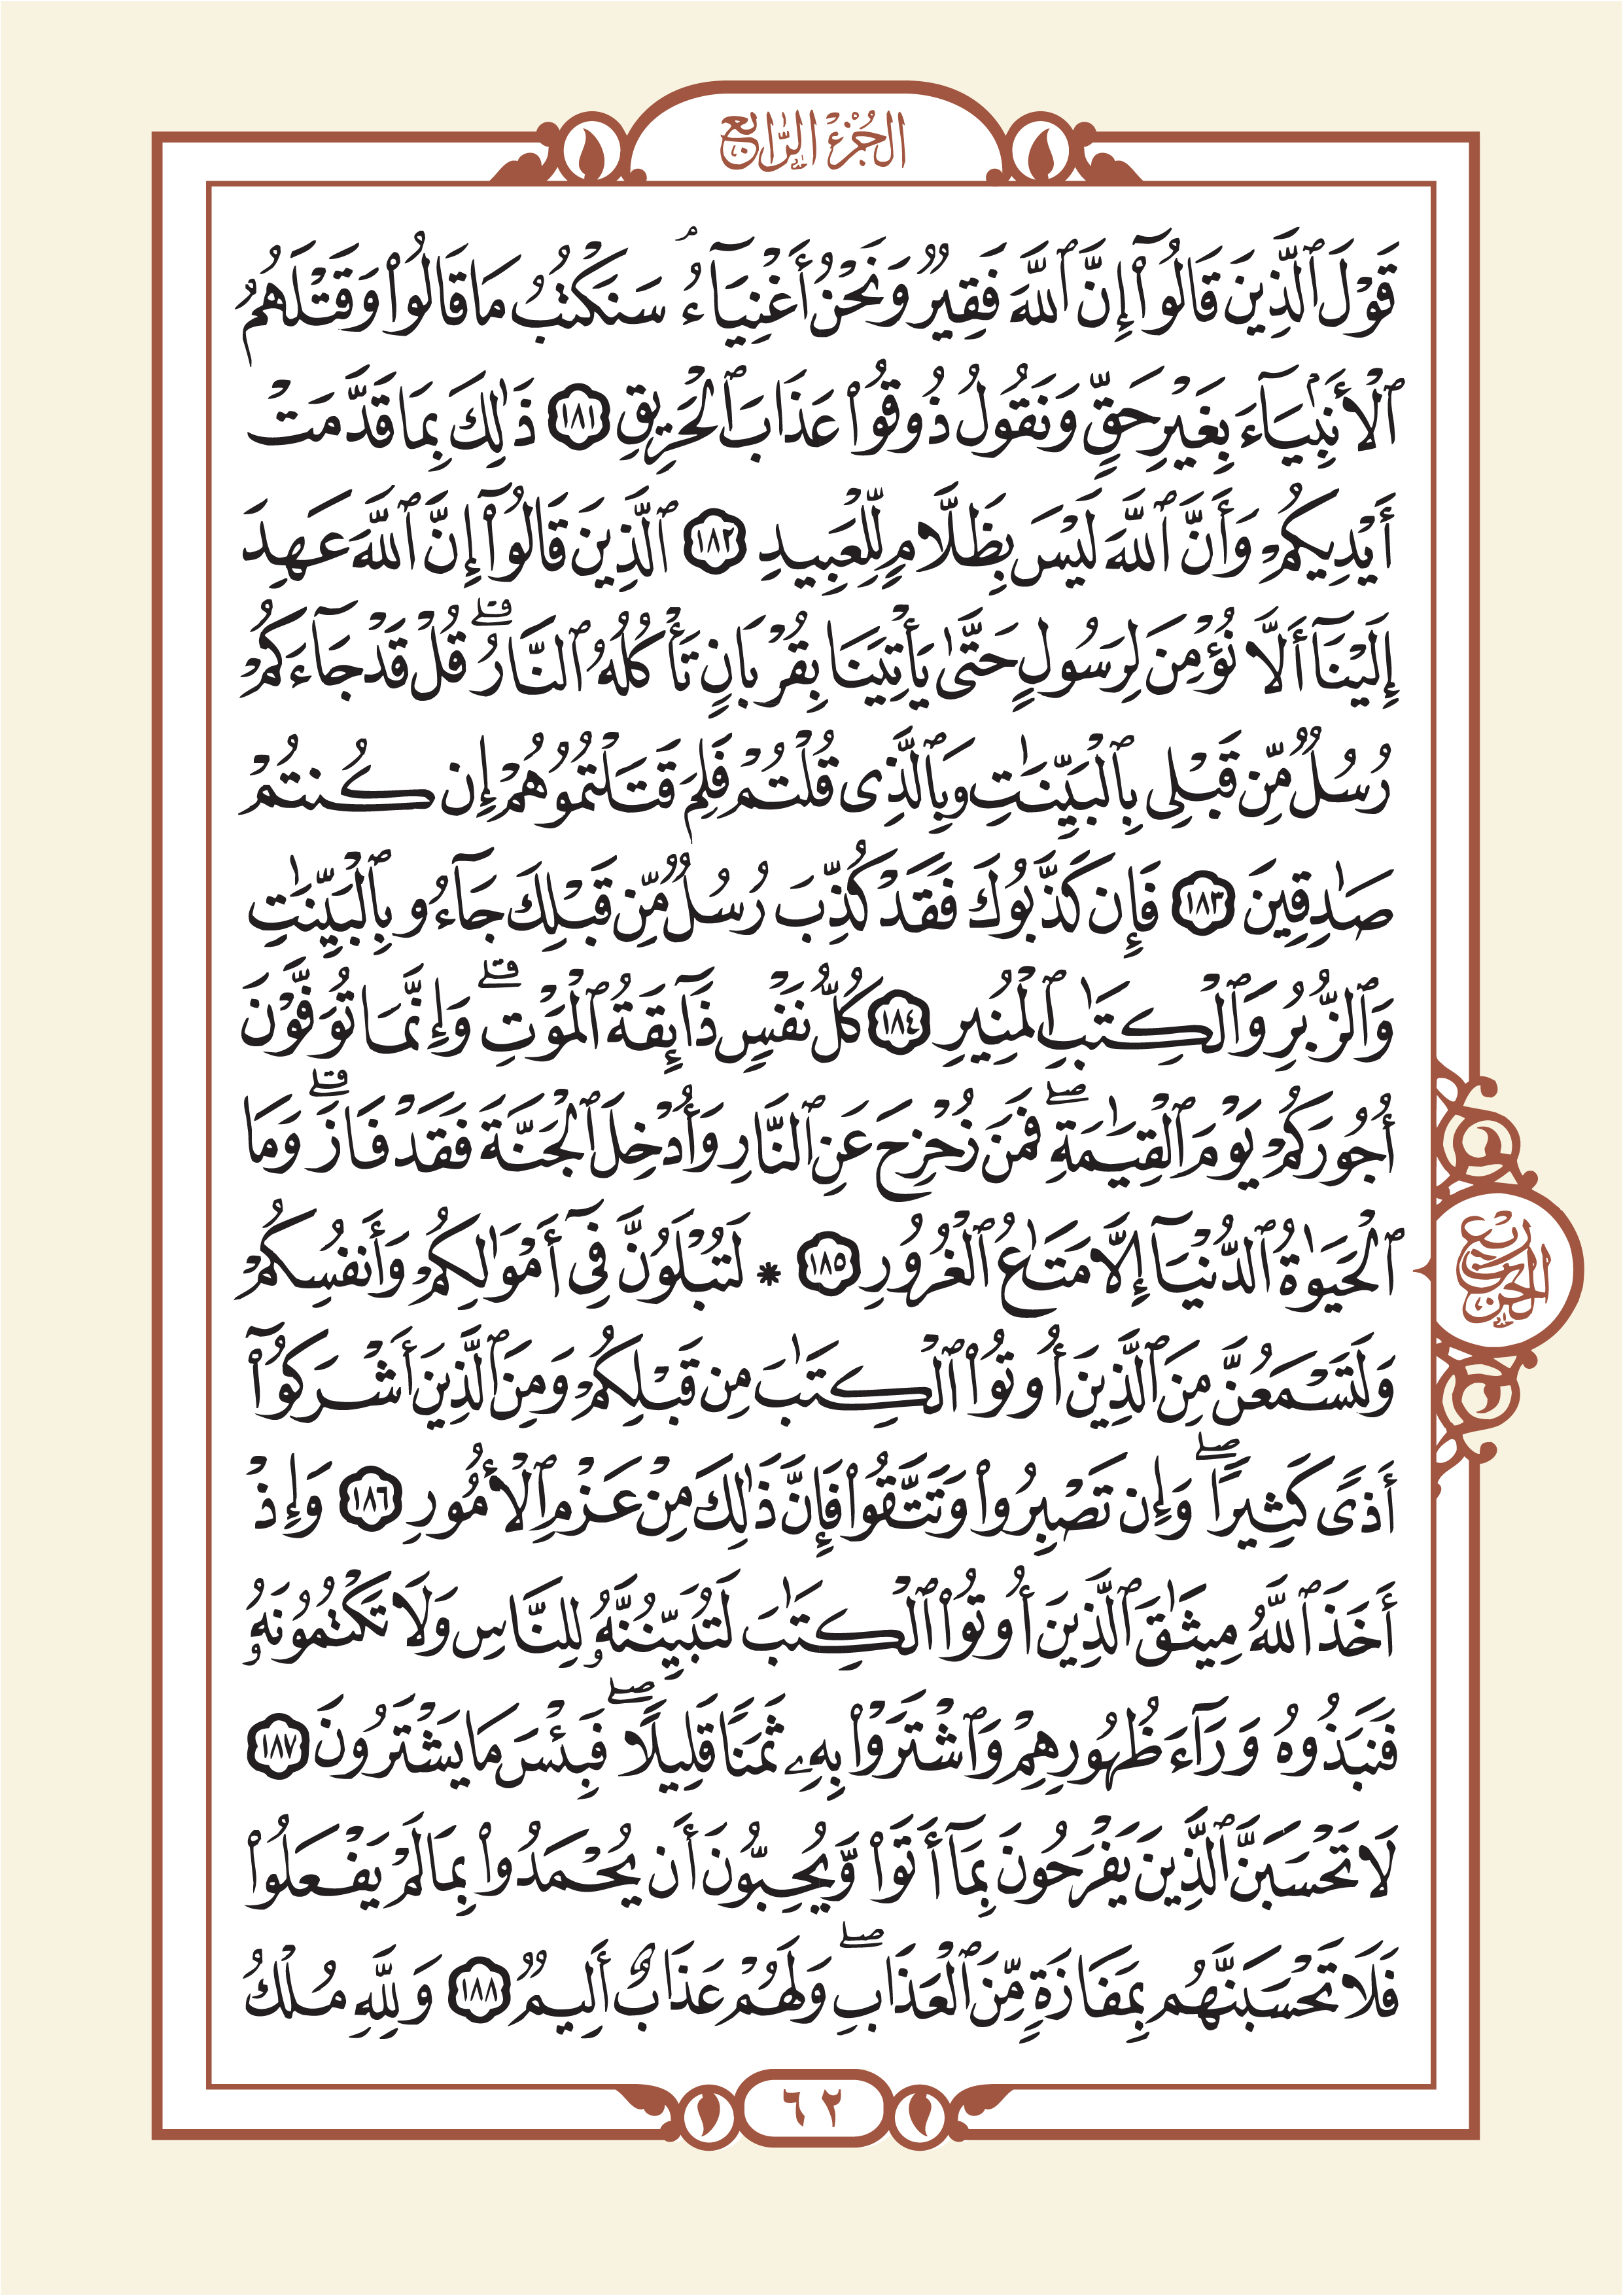 الجُزْءُ الرَّابِعُ
قَوْلَ ٱلَّذِينَ قَالُوٓا۟ إِنَّ ٱللَّهَ فَقِيرٌ وَنَحْنُ أَغْنِيَآءُ ۘ سَنَكْتُبُ مَا قَالُوا۟ وَقَتْلَهُمُ
ٱلْأَنۢبِيَآءَ بِغَيْرِ حَقٍّ وَنَقُولُ ذُوقُوا۟ عَذَابَ ٱلْحَرِيقِ ١٨١ ذَٰلِكَ بِمَا قَدَّمَتْ
أَيْدِيكُمْ وَأَنَّ ٱللَّهَ لَيْسَ بِظَلَّامٍ لِّلْعَبِيدِ ١٨٢ ٱلَّذِينَ قَالُوٓا۟ إِنَّ ٱللَّهَ عَهِدَ
إِلَيْنَآ أَلَّا نُؤْمِنَ لِرَسُولٍ حَتَّىٰ يَأْتِيَنَا بِقُرْبَانٍ تَأْكُلُهُ ٱلنَّارُ ۗ قُلْ قَدْ جَآءَكُمْ
رُسُلٌ مِّن قَبْلِى بِٱلْبَيِّنَٰتِ وَبِٱلَّذِى قُلْتُمْ فَلِمَ قَتَلْتُمُوهُمْ إِن كُنتُمْ
صَٰدِقِينَ ١٨٣ فَإِن كَذَّبُوكَ فَقَدْ كُذِّبَ رُسُلٌ مِّن قَبْلِكَ جَآءُو بِٱلْبَيِّنَٰتِ
وَٱلزُّبُرِ وَٱلْكِتَٰبِ ٱلْمُنِيرِ ١٨٤ كُلُّ نَفْسٍ ذَآئِقَةُ ٱلْمَوْتِ ۗ وَإِنَّمَا تُوَفَّوْنَ
أُجُورَكُمْ يَوْمَ ٱلْقِيَٰمَةِ ۖ فَمَن زُحْزِحَ عَنِ ٱلنَّارِ وَأُدْخِلَ ٱلْجَنَّةَ فَقَدْ فَازَ ۗ وَمَا
ٱلْحَيَوٰةُ ٱلدُّنْيَآ إِلَّا مَتَٰعُ ٱلْغُرُورِ ١٨٥ * لَتُبْلَوُنَّ فِىٓ أَمْوَٰلِكُمْ وَأَنفُسِكُمْ
ربع الحزب
وَلَتَسْمَعُنَّ مِنَ ٱلَّذِينَ أُوتُوا۟ ٱلْكِتَٰبَ مِن قَبْلِكُمْ وَمِنَ ٱلَّذِينَ أَشْرَكُوٓا۟
أَذًى كَثِيرًا ۖ وَإِن تَصْبِرُوا۟ وَتَتَّقُوا۟ فَإِنَّ ذَٰلِكَ مِنْ عَزْمِ ٱلْأُمُورِ ١٨٦ وَإِذْ
أَخَذَ ٱللَّهُ مِيثَٰقَ ٱلَّذِينَ أُوتُوا۟ ٱلْكِتَٰبَ لَتُبَيِّنُنَّهُۥ لِلنَّاسِ وَلَا تَكْتُمُونَهُۥ
فَنَبَذُوهُ وَرَآءَ ظُهُورِهِمْ وَٱشْتَرَوْا۟ بِهِۦ ثَمَنًا قَلِيلًا ۖ فَبِئْسَ مَا يَشْتَرُونَ ١٨٧
لَا تَحْسَبَنَّ ٱلَّذِينَ يَفْرَحُونَ بِمَآ أَتَوا۟ وَّيُحِبُّونَ أَن يُحْمَدُوا۟ بِمَا لَمْ يَفْعَلُوا۟
فَلَا تَحْسَبَنَّهُم بِمَفَازَةٍ مِّنَ ٱلْعَذَابِ ۖ وَلَهُمْ عَذَابٌ أَلِيمٌ ١٨٨ وَلِلَّهِ مُلْكُ
٦٢